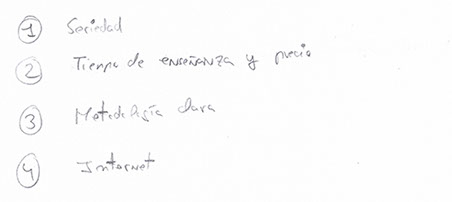 1 Seriedad
2 Tiempo de enseñanza y precio
3 Metodología clara
4 Internet